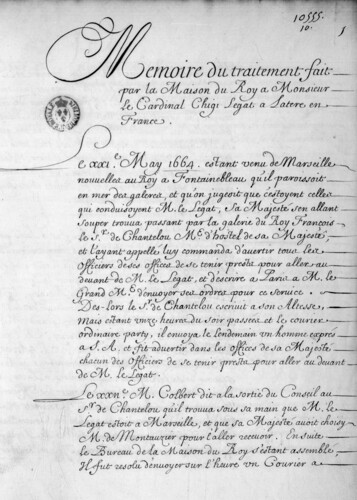 10555.
10.
5
Memoire du traitement fait
par la Maison du Roy a Monsieur
le Cardinal Chigi Legat a Latere en
France.
Le xxi.e May 1664. estant venu de Marseille
nouvelles au Roy a Fontainebleau qu'il paroissoit
en mer des galeres, et qu'on jugeoit que c'estoyent celles
qui conduisoyent M. le Legat, Sa Majesté s'en allant
souper trouva passant par la galerie du Roy François
le S.r de Chantelou M.e d'hostel de sa Majesté,
et l'ayant appellé luy commanda d'avertir tous les
Officiers de ses offices de se tenir prests pour aller au
devant de M. le Legat, et d'escrire a Paris a M. le
Grand M.e d'envoyer ses ordres pour ce service.
Des-lors le S.r de Chantelou escrivit a son Altesse,
mais estant unze heures du soir passées et le courier
ordinaire party, il envoya le lendemain un homme exprés
a S. A. et fit advertir dans les offices de sa Majesté
chacun des Officiers de se tenir prests pour aller au devant
de M. le Legat.
Le xxii.e M. Colbert dit a la sortie du Conseil au
S.r de Chantelou qu'il trouva sous sa main que M. le
Legat estoit a Marseille, et que sa Majesté avoit choisy
M. de Montauzier pour l'aller recevoir. En suite
le Bureau de la Maison du Roy s'estant assemblé,
Il fut resolu d'envoyer sur l'heure un Courier a